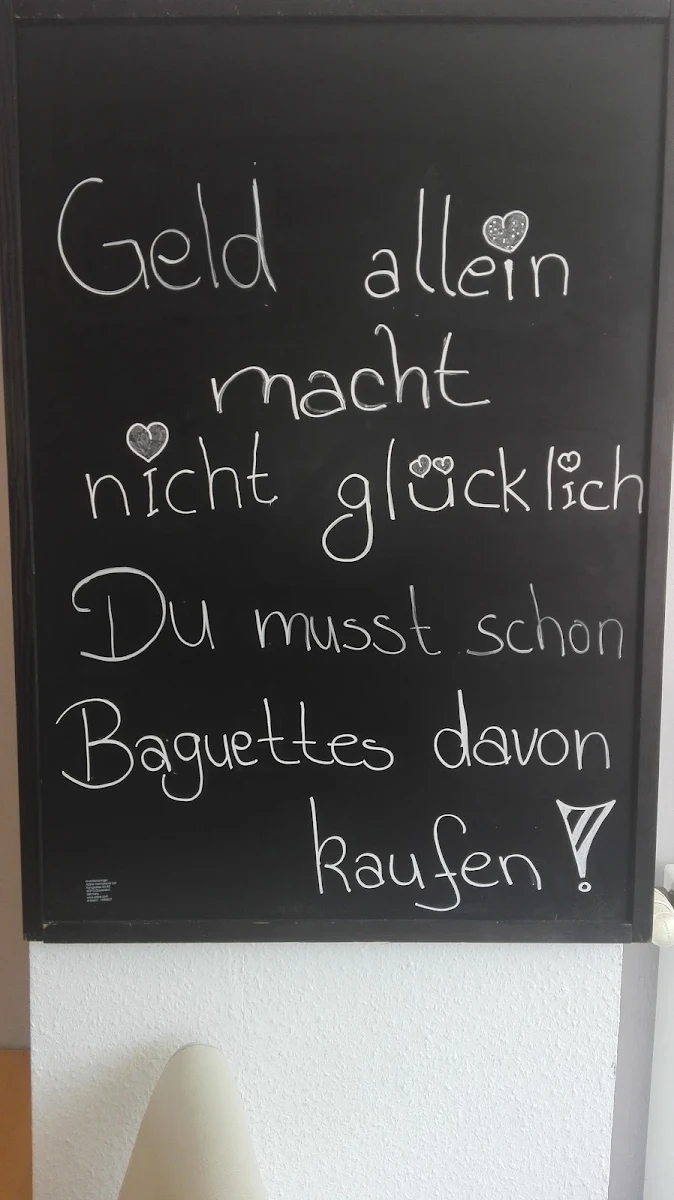 Geld allein
macht
nicht glücklich
Du musst schon
Baguettes davon
kaufen!